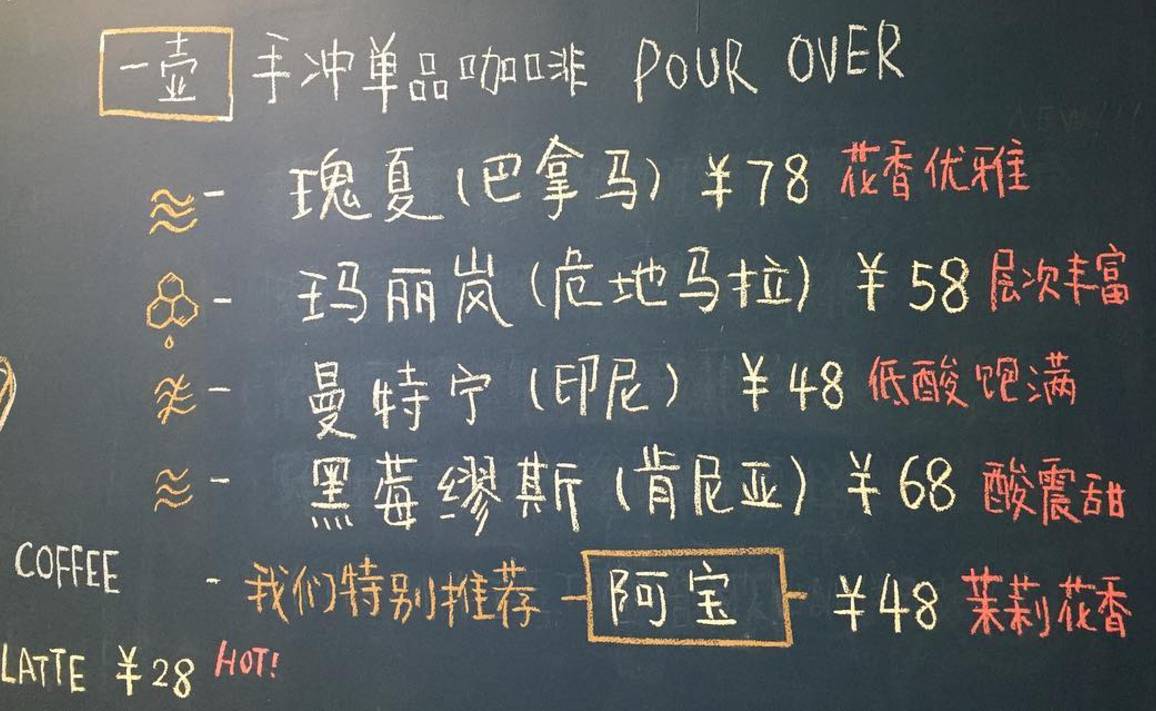 一壶 手冲单品咖啡 POUR OVER
- 瑰夏(巴拿马) ¥78 花香优雅
- 玛丽岚(危地马拉) ¥58 层次丰富
- 曼特宁(印尼) ¥48 低酸饱满
- 黑莓缪斯(肯尼亚) ¥68 酸震甜
COFFEE
- 我们特别推荐 - 阿宝 - ¥48 茉莉花香
LATTE ¥28 HOT!